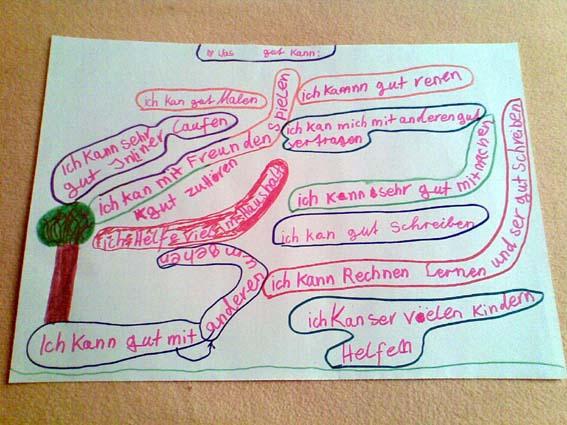 Was gut kann:
ich kan gut Malen
ich kamnn gut renen
ich kann sehr
gut Inliner Laufen
ich kan mit Freunden spielen
gut zuhören
ich kan mich mit anderen gut
vertragen
ich kann sehr gut mitmachen
ich Helfe viel im Haushalt
ich kan gut Schreiben
Ich kann gut mit anderen um gehen
ich kann Rechnen Lernen und ser gut Schreiben
ich Kan ser vielen Kindern
Helfen